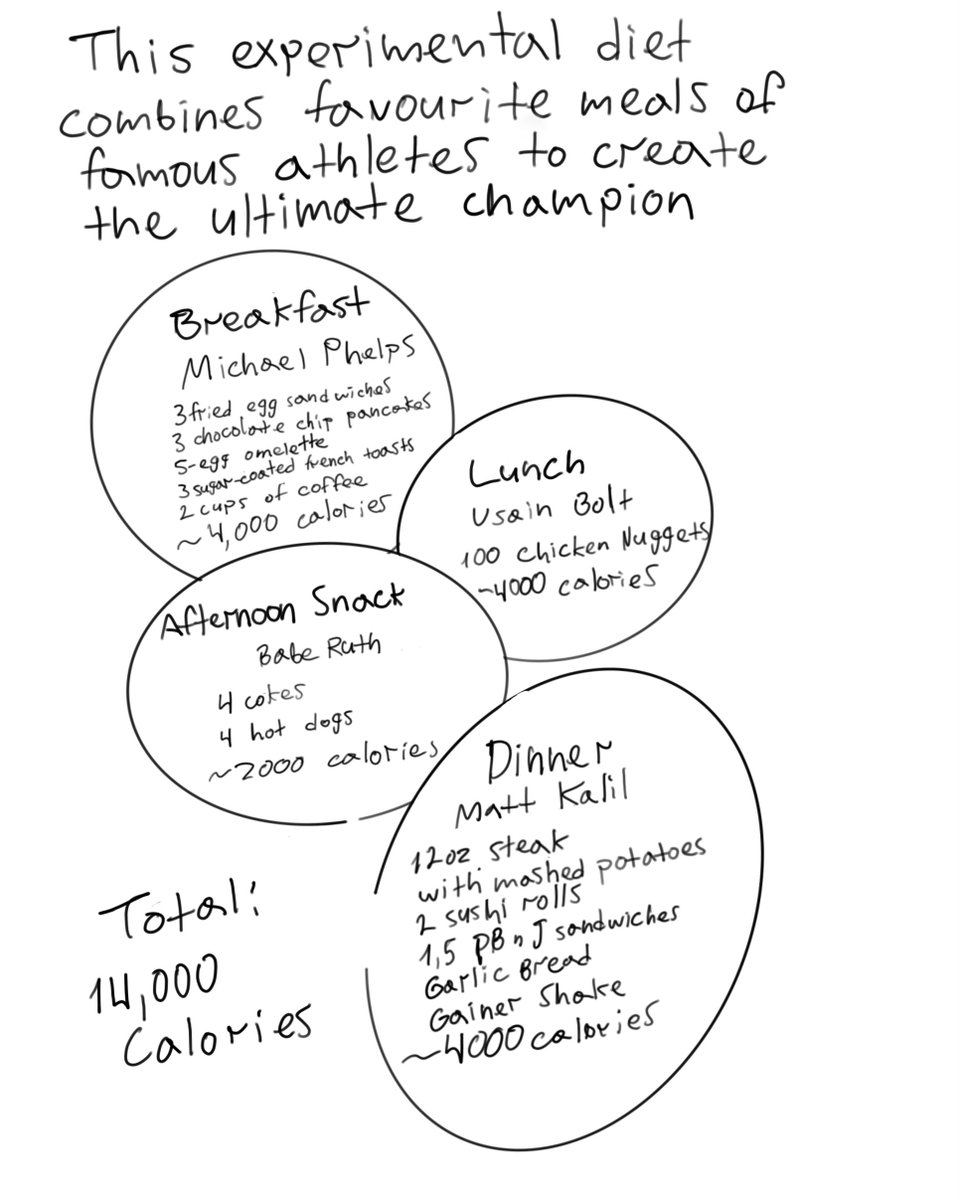 This experimental diet
combines favourite meals of
famous athletes to create
the ultimate champion
Breakfast
Michael Phelps
3 fried egg sandwiches
3 chocolate chip pancakes
5-egg omelette
3 sugar-coated french toasts
2 cups of coffee
~4,000 calories
Lunch
Usain Bolt
100 Chicken Nuggets
~4000 calories
Afternoon Snack
Babe Ruth
4 cokes
4 hot dogs
~2000 calories
Dinner
Matt Kalil
12oz steak
with mashed potatoes
2 sushi rolls
1,5 PB n J sandwiches
Garlic Bread
Gainer Shake
~4000 calories
Total:
14,000
Calories